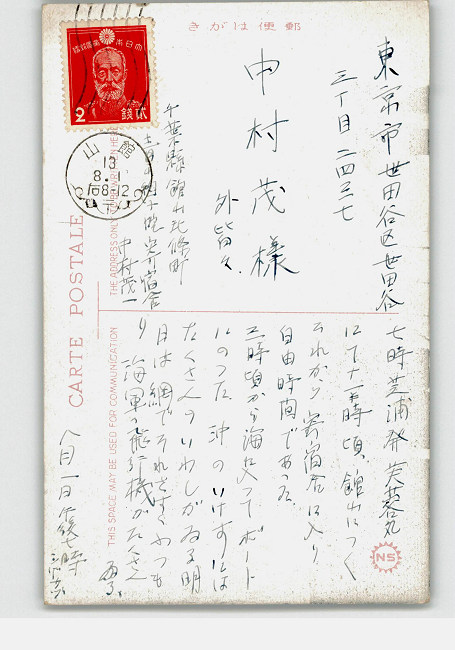 きがは便郵
東京市世田谷区世田谷
三丁目二四三七
中村茂様
外皆々
千葉縣館山北條町
寄宿舎
中村茂一
大日本帝國郵便
2 銭 貳
館山
13
8.
CARTE POSTALE
THE ADDRESS ONLY
THIS SPACE MAY BE USED FOR COMMUNICATION
七時芝浦発芙蓉丸
にて十一時頃、館山につく
それから寄宿舎に入り
自由時間であった
三時頃から海に入ってボート
にのった 沖のいけすには
たくさんのいわしがゐる明
日は網でそれをすくふつも
り 海軍の飛行機がたくさん
ゐる
八月一日午後七時
NS